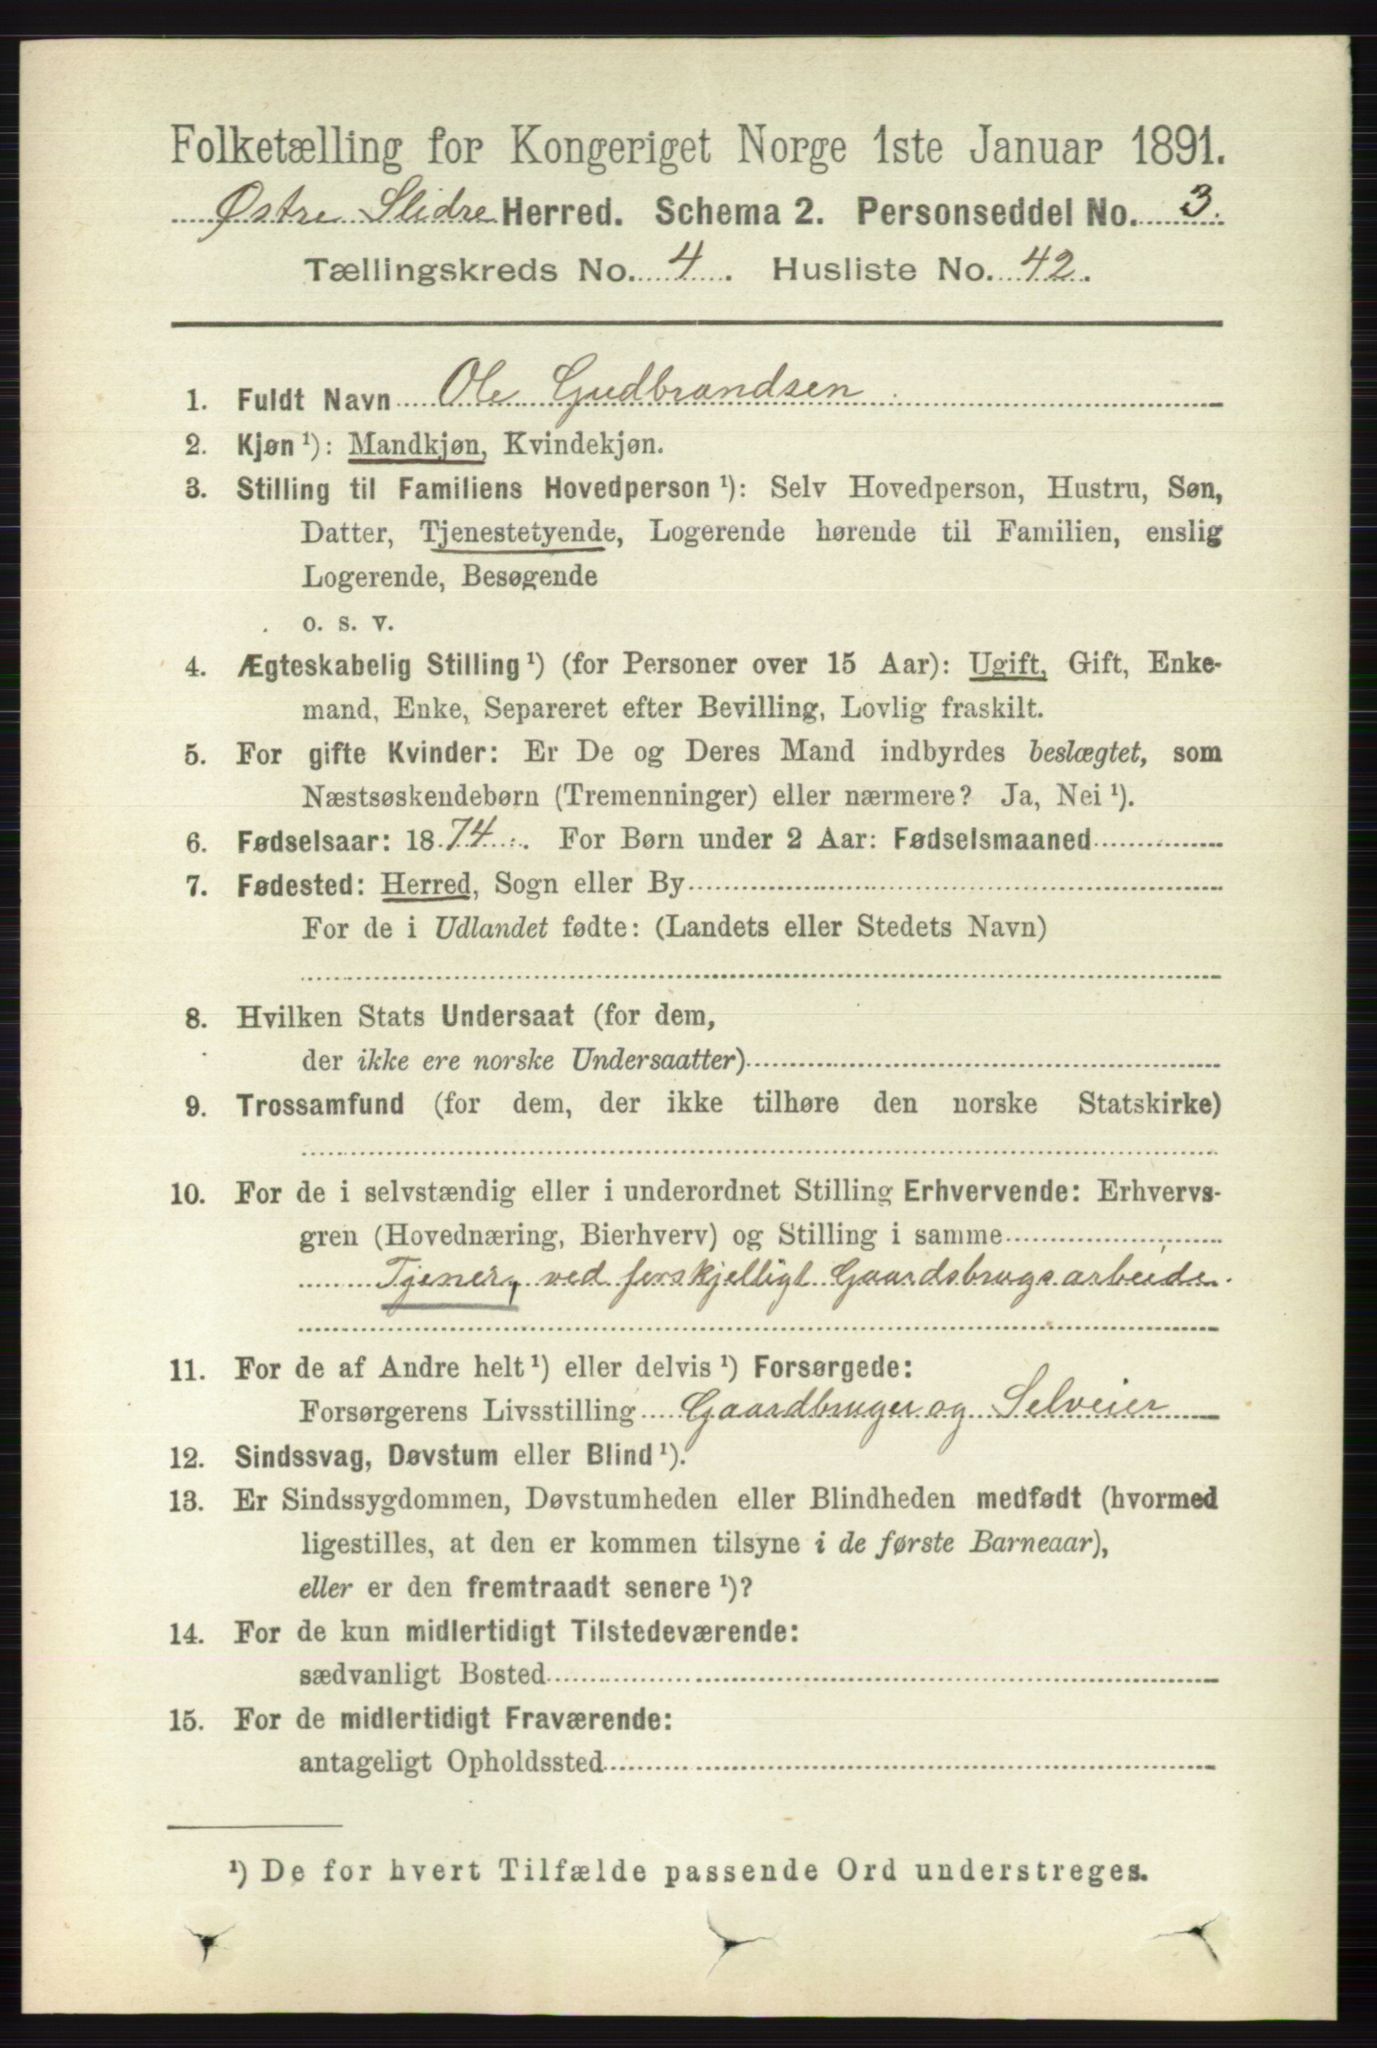 Folketælling for Kongeriget Norge 1ste Januar 1891.
Østre Slidre Herred. Schema 2. Personseddel No. 3.
Tællingskreds No. 4. Husliste No. 42.
1. Fuldt Navn Ole Gudbrandsen
2. Kjøn ¹): Mandkjøn, Kvindekjøn.
3. Stilling til Familiens Hovedperson ¹): Selv Hovedperson, Hustru, Søn,
Datter, Tjenestetyende, Logerende hørende til Familien, enslig
Logerende, Besøgende
o. s. v.
4. Ægteskabelig Stilling ¹) (for Personer over 15 Aar): Ugift, Gift, Enke-
mand, Enke, Separeret efter Bevilling, Lovlig fraskilt.
5. For gifte Kvinder: Er De og Deres Mand indbyrdes beslægtet, som
Næstsøskendebørn (Tremenninger) eller nærmere? Ja, Nei ¹).
6. Fødselsaar: 1874. For Børn under 2 Aar: Fødselsmaaned
7. Fødested: Herred, Sogn eller By
For de i Udlandet fødte: (Landets eller Stedets Navn)
8. Hvilken Stats Undersaat (for dem,
der ikke ere norske Undersaatter)
9. Trossamfund (for dem, der ikke tilhøre den norske Statskirke)
10. For de i selvstændig eller i underordnet Stilling Erhvervende: Erhvervs-
gren (Hovednæring, Bierhverv) og Stilling i samme
Tjener, ved forskjelligt Gaardsbrugsarbeide.
11. For de af Andre helt ¹) eller delvis ¹) Forsørgede:
Forsørgerens Livsstilling Gaardbruger og Selveier
12. Sindssvag, Døvstum eller Blind ¹).
13. Er Sindssygdommen, Døvstumheden eller Blindheden medfødt (hvormed
ligestilles, at den er kommen tilsyne i de første Barneaar),
eller er den fremtraadt senere ¹)?
14. For de kun midlertidigt Tilstedeværende:
sædvanligt Bosted
15. For de midlertidigt Fraværende:
antageligt Opholdssted
¹) De for hvert Tilfælde passende Ord understreges.